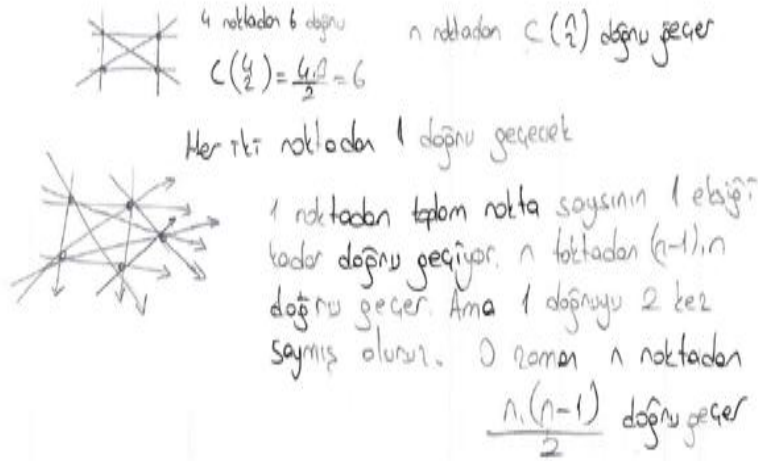 4 noktadan 6 doğru
n noktadan C(n 2) doğru geçer
C(4 2) = 4.3/2 = 6
Her iki noktadan 1 doğru geçecek
1 noktadan toplam nokta sayısının 1 eksiği
kadar doğru geçiyor. n noktadan (n-1).n
doğru geçer. Ama 1 doğruyu 2 kez
saymış oluruz. O zaman n noktadan
n.(n-1)/2 doğru geçer